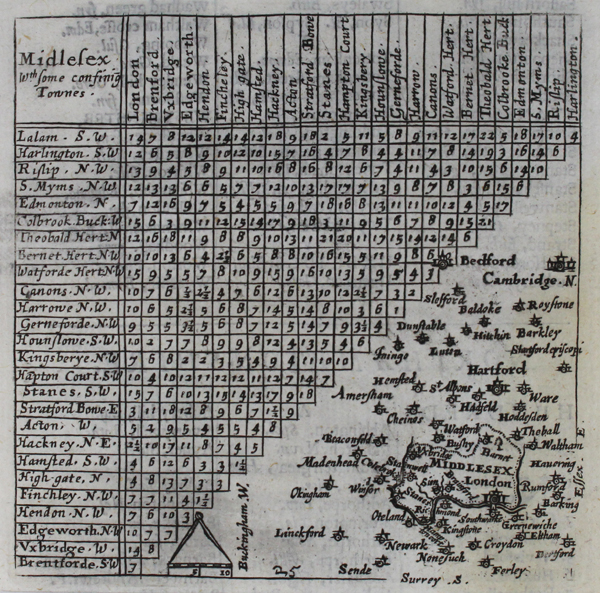 Midlesex
Wth some confinig
Townes.
London
Brenford
Vxbridge
Edgeworth
Hendon
Fincheley
High gate
Hamsted
Hackney
Acton
Stratford Bowe
Stanes
Hampton Court
Kingsbery
Hounslowe
Gerneforde
Harrow
Canons
Watford Hert.
Bernet Hert.
Theobald Hert
Colbrooke Buck
Edmonton
S. Myms
Rislip
Harlington
Lalam . S. W. 14 7 8 12 12 14 14 12 18 9 18 2 5 11 5 8 9 11 12 17 22 5 18 17 10 4
Harlington. S. W 12 6 5 8 9 10 12 10 15 7 16 4 7 8 4 4 11 7 8 14 19 3 16 14 6
Rislip. N. W. 13 9 4 5 8 9 11 10 16 8 16 8 12 6 7 4 11 4 3 10 15 6 14 10
S. Myms. N. W 12 13 13 6 6 5 7 7 12 10 13 17 17 7 13 9 8 7 8 3 6 15 6
Edmonton. N. 7 12 16 9 7 5 4 5 5 9 7 18 16 8 13 11 11 10 12 4 5 17
Colbrook Buck: W 15 6 3 9 11 12 15 14 17 9 18 3 11 9 5 6 7 8 9 15 21
Theobald Hert: N 12 16 18 11 9 8 8 9 10 13 11 21 20 11 17 15 14 12 14 6
Bernet Hert. N. W 10 10 13 6 4 2½ 6 5 8 8 10 16 15 5 11 9 8 6
Watforde Hert N. W 15 9 5 5 7 8 10 9 15 9 16 10 13 5 9 5 4 3
Canons. N. W. 10 7 6 4 7 6 12 6 13 12 10 2½ 7 3 2
Harrowe N. W. 10 6 5 2½ 5 6 8 7 14 5 14 8 10 3 6 1
Gerneforde. N. W 9 5 5 3½ 5 6 8 7 12 5 14 7 9 3½ 4
Hounslowe. S. W. 10 2 7 7 8 9 9 8 12 4 13 5 4 6
Kingsberye. N. W. 7 6 8 2 2 3 5 4 9 4 11 10 10
Hapton Court. S W 10 4 10 12 11 12 12 11 12 7 14 7
Stanes. S. W. 15 7 6 10 13 13 14 13 17 9 18
Stratford Bowe. E 3 11 18 12 8 9 6 7 1½ 9
Acton. W. 5 2 9 5 4 5 5 4 8
Hackney. N. E. 2½ 10 17 11 8 7 4 5
Hamsted. S. W. 4 6 12 6 3 3 1½
High. gate, N. 4 8 13 7 3 3
Finchley. N. W. 7 7 11 4 1½
Hendon. N. W. 7 6 10 3
Edgeworth. N. W 10 7 7
Vxbridge. W. 14 8
Brentforde. S. W 7
5 10
Buckingham. W.
25
Bedford
Cambridge. N.
Stefford
Baldoke
Roystone
Dunstable
Hitchin
Barkley
Luten
Startford episcopi
Ininge
Hartford
Hemsted
St Albons
Ware
Amersham
Hatfeld
Hoddesden
Cheines
Watford
Theball
Beaconsfeld
Bushy
Barnet
Waltham
Essex. E.
Vxbridge
Madenhead
MIDDLESEX
Havering
London
Okingham
Winsor
Sion
Rumford
Barking
Stanes
Oteland
Richmond
Southwarke
Grenewiche
Linckford
Kingstone
Eltham
Newark
Croydon
Dertford
Nonesuch
Sende
Ferley
Surrey. S.